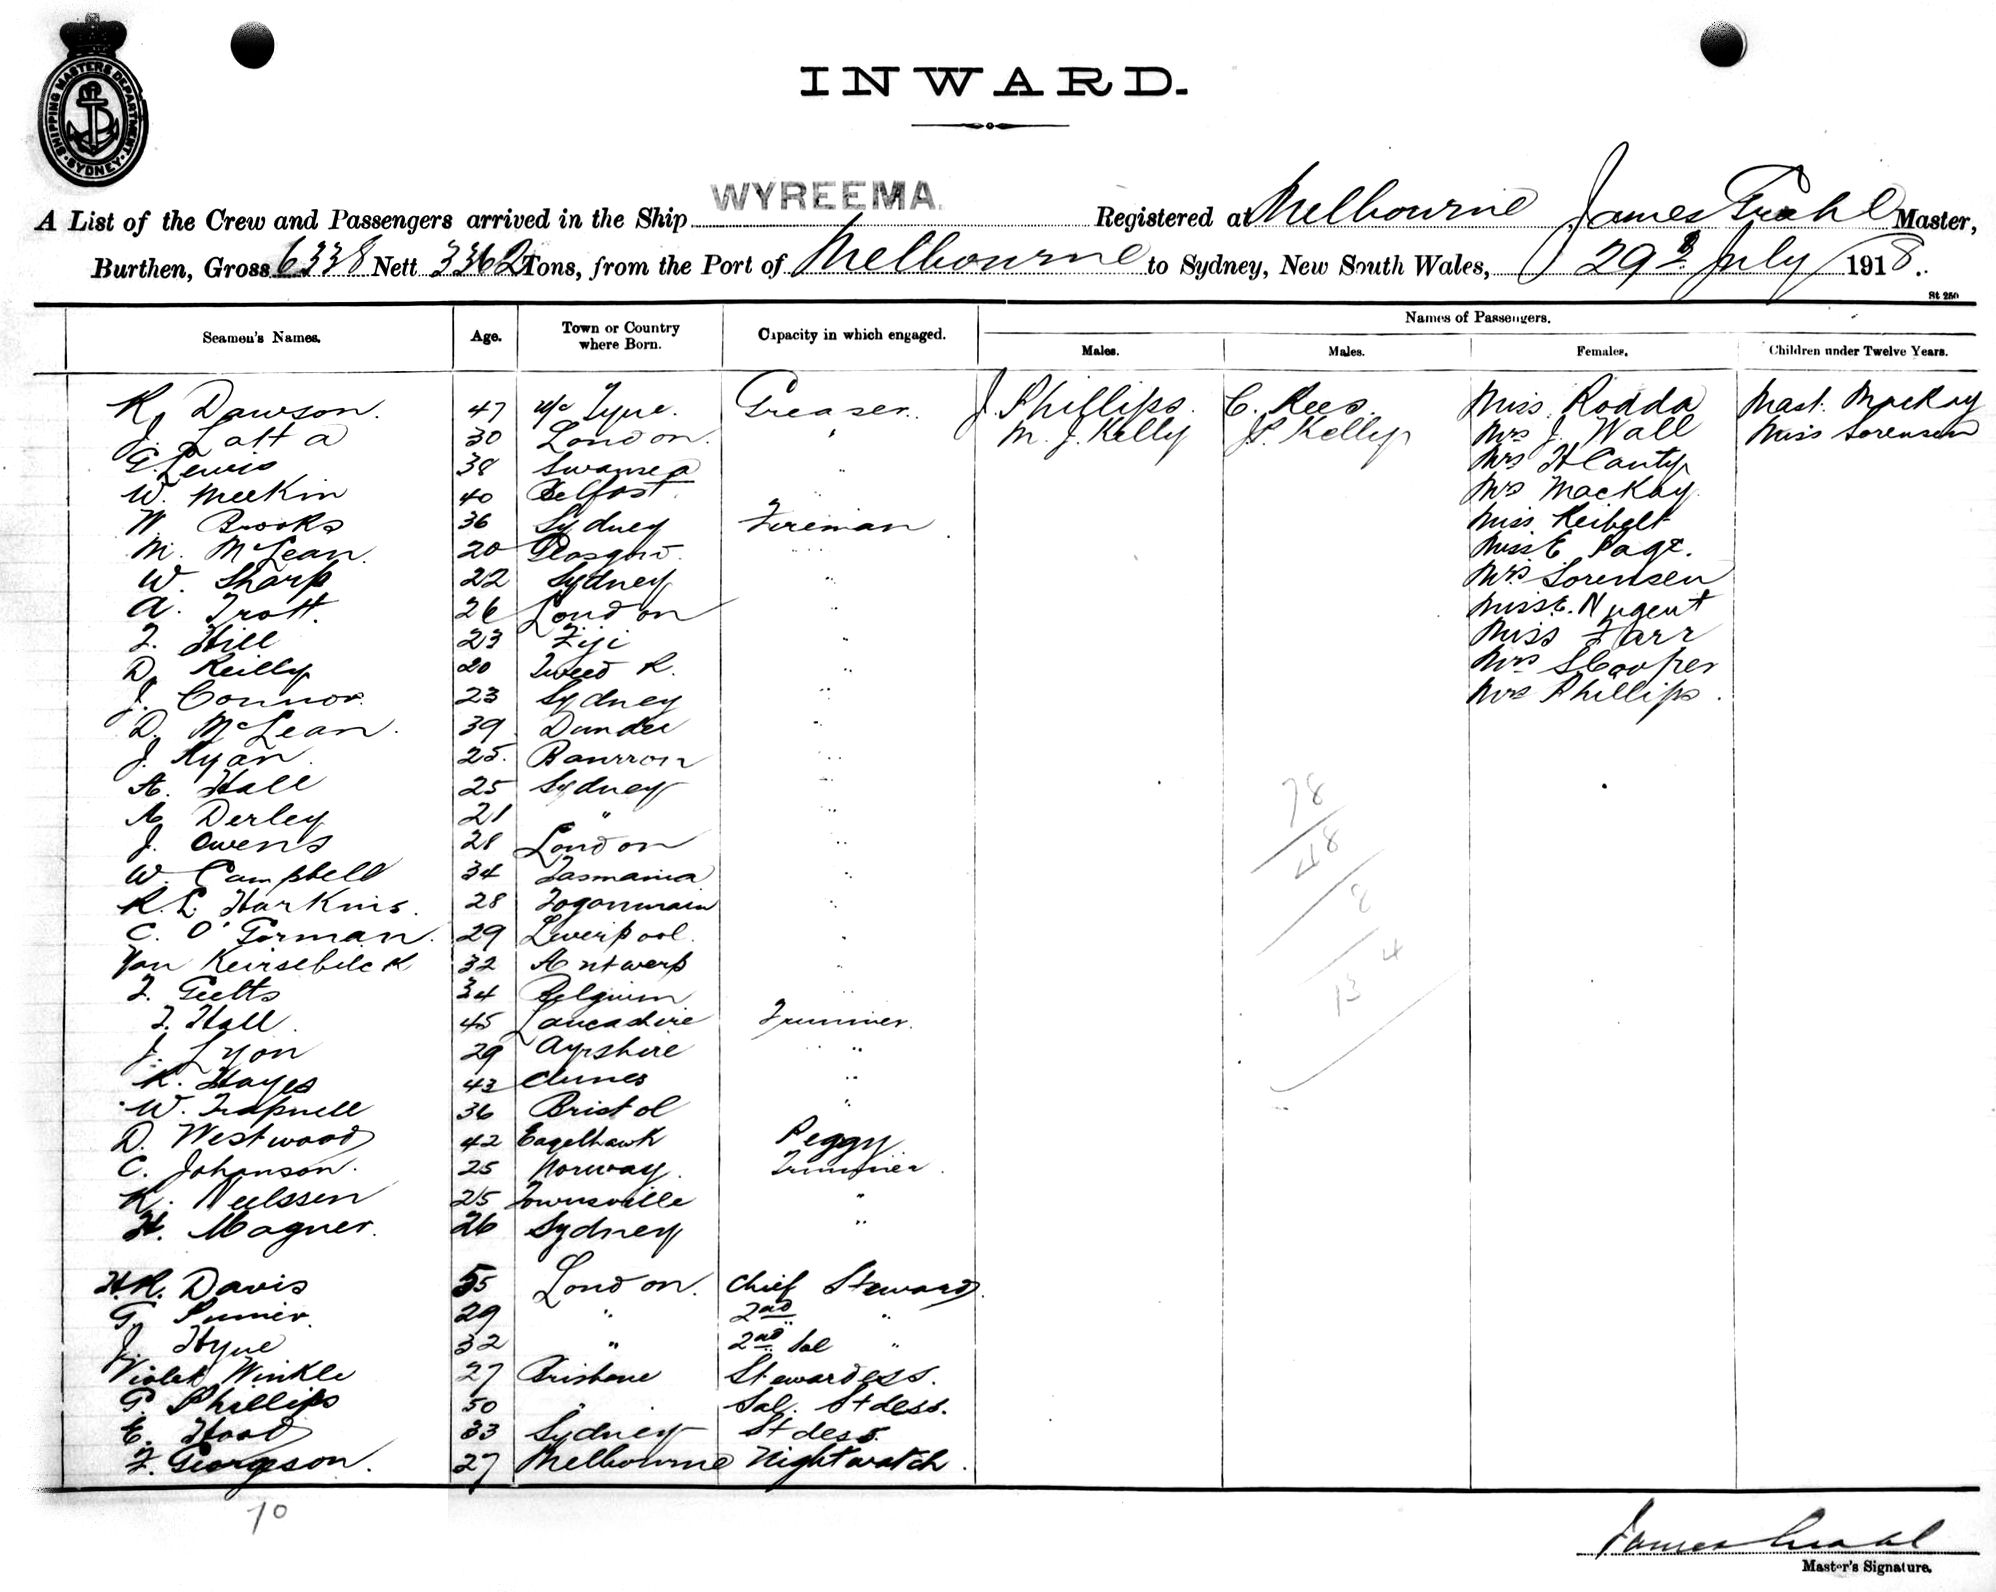 SHIPPING MASTERS DEPARTMENT · SYDNEY ·
INWARD.
A List of the Crew and Passengers arrived in the Ship WYREEMA. Registered at Melbourne, James Grahl Master,
Burthen, Gross 6338 Nett 3362 Tons, from the Port of Melbourne to Sydney, New South Wales, 29 July 1918.
St 250
Seamen's Names. Age. Town or Country where Born. Capacity in which engaged. Names of Passengers.
Males. Males. Females. Children under Twelve Years.
R. Dawson. 47 Tyne. Greaser. J. Phillips. C. Rees. Miss Rodda Mast. MacKay
J. Latta 30 London. " M. J. Kelly P. Kelly Mrs J. Wall Miss Sorensen
G. Lewis 38 Swansea " Mrs H Canty
W. Meekin 40 Belfast " Mrs MacKay
W. Brooks 36 Sydney Fireman Miss Reibelt
M. McLean. 20 Glasgow. " Miss E Page.
W. Sharp 22 Sydney " Mrs Sorensen
A. Trott. 26 London " Miss E. Nugent
F. Hill 23 Fiji " Miss Farr
D. Reilly 20 Tweed R. " Mrs S Cooper
J. Connor. 23 Sydney " Mrs Phillips.
D. McLean. 39 Dundee "
J. Ryan. 25. "
A. Hall 25 Sydney "
A Derley 21 " "
J. Owens 28 London "
W. Campbell 34 Tasmania "
R. L. Harkins. 28 "
C. O'Gorman. 29 Liverpool. "
Van Keirsebilck 32 Antwerp "
F. Geelts 34 Belgium "
F. Hall. 45 Lancashire Trimmer.
J. Lyon 29 Ayrshire "
R. Hayes 43 Clunes "
W. Trapnell 36 Bristol "
D. Westwood 42 Eagelhawk Peggy
C. Johanson. 25 Norway. Trimmer.
R. Neilssen 25 Townsville "
H. Magner. 26 Sydney "
H.R. Davis 55 London. Chief Steward.
G. 29 " 2nd "
J. Hyne 32 " 2nd Sal "
Violet Winkle 27 Brisbane Stewardess.
G. Phillips 50 " Sal. Stdess.
E. Hood 33 Sydney Stdess.
F. Georgeson. 27 Melbourne Nightwatch.
78
48
8
4
13
70
James Grahl
Master's Signature.